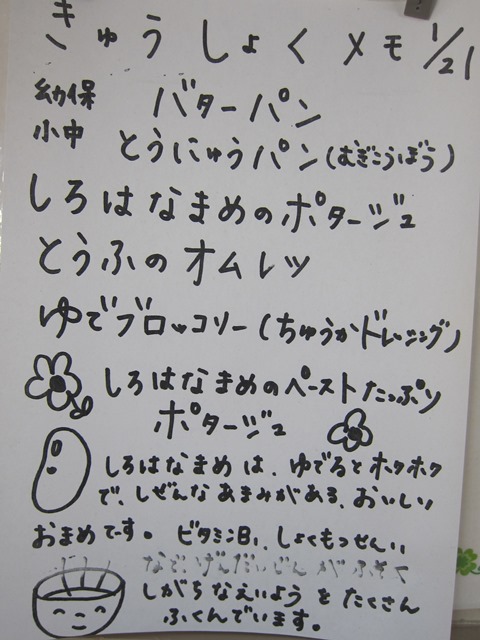 きゅうしょくメモ 1/21
幼保 バターパン
小中 とうにゅうパン(むぎこうぼう)
しろはなまめのポタージュ
とうふのオムレツ
ゆでブロッコリー(ちゅうかドレッシング)
しろはなまめのペーストたっぷり
ポタージュ
しろはなまめは、ゆでるとホクホク
で、しぜんなあまみがある、おいしい
おまめでーす。 ビタミンB1、しょくもつせんい
など、げんだいじんがふそく
しがちなえいようをたくさん
ふくんでいます。